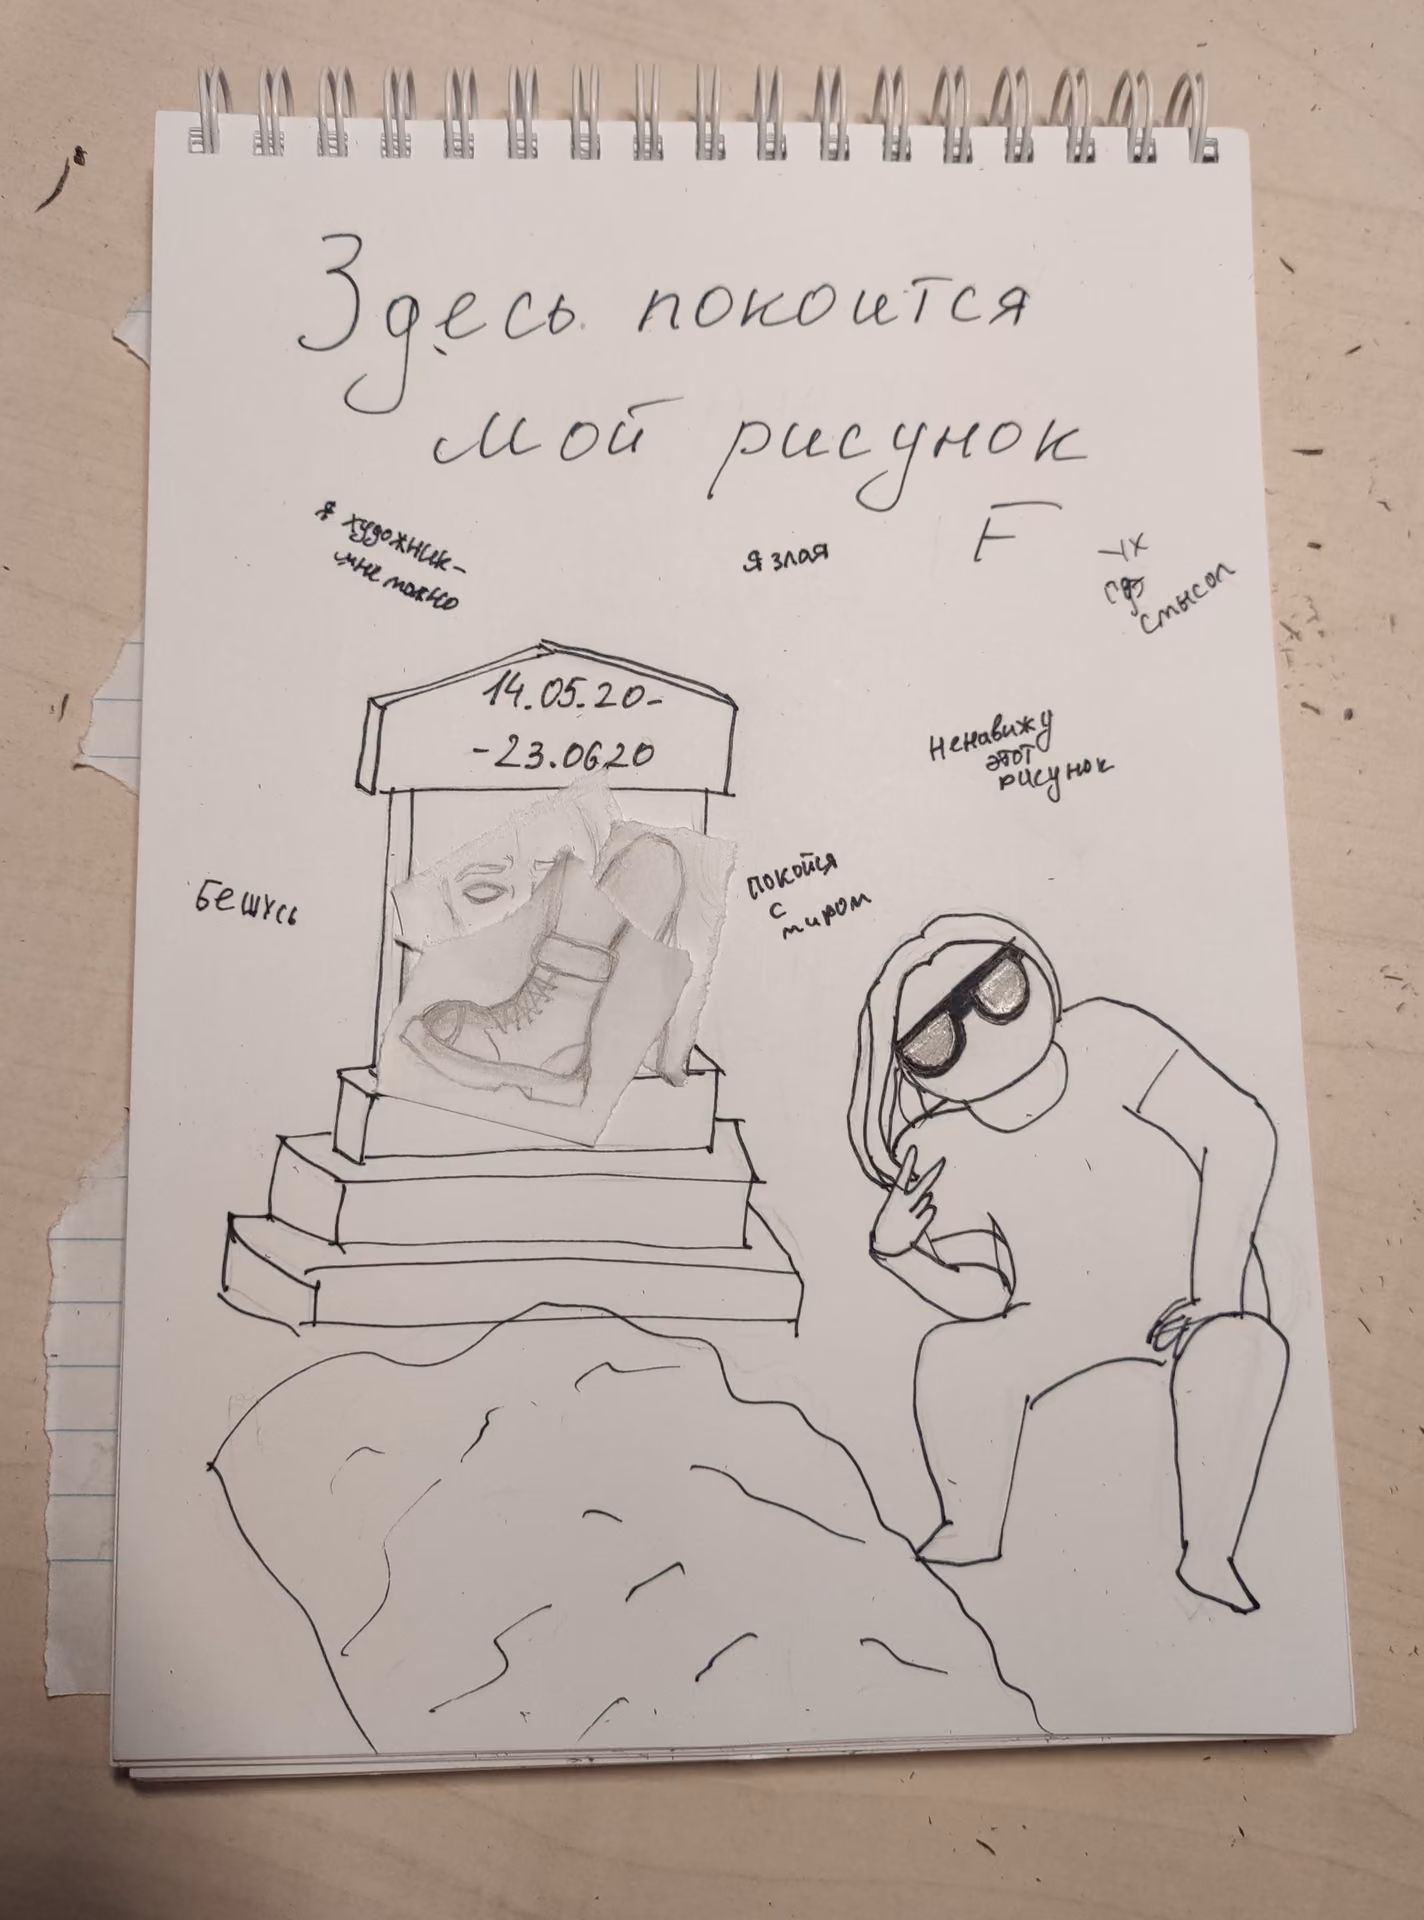 Здесь покоится
мой рисунок
F
Я художник-
мне можно
Я злая
где
смысл
14.05.20-
-23.06.20
Ненавижу
этот
рисунок
Бешусь
покойся
с
миром